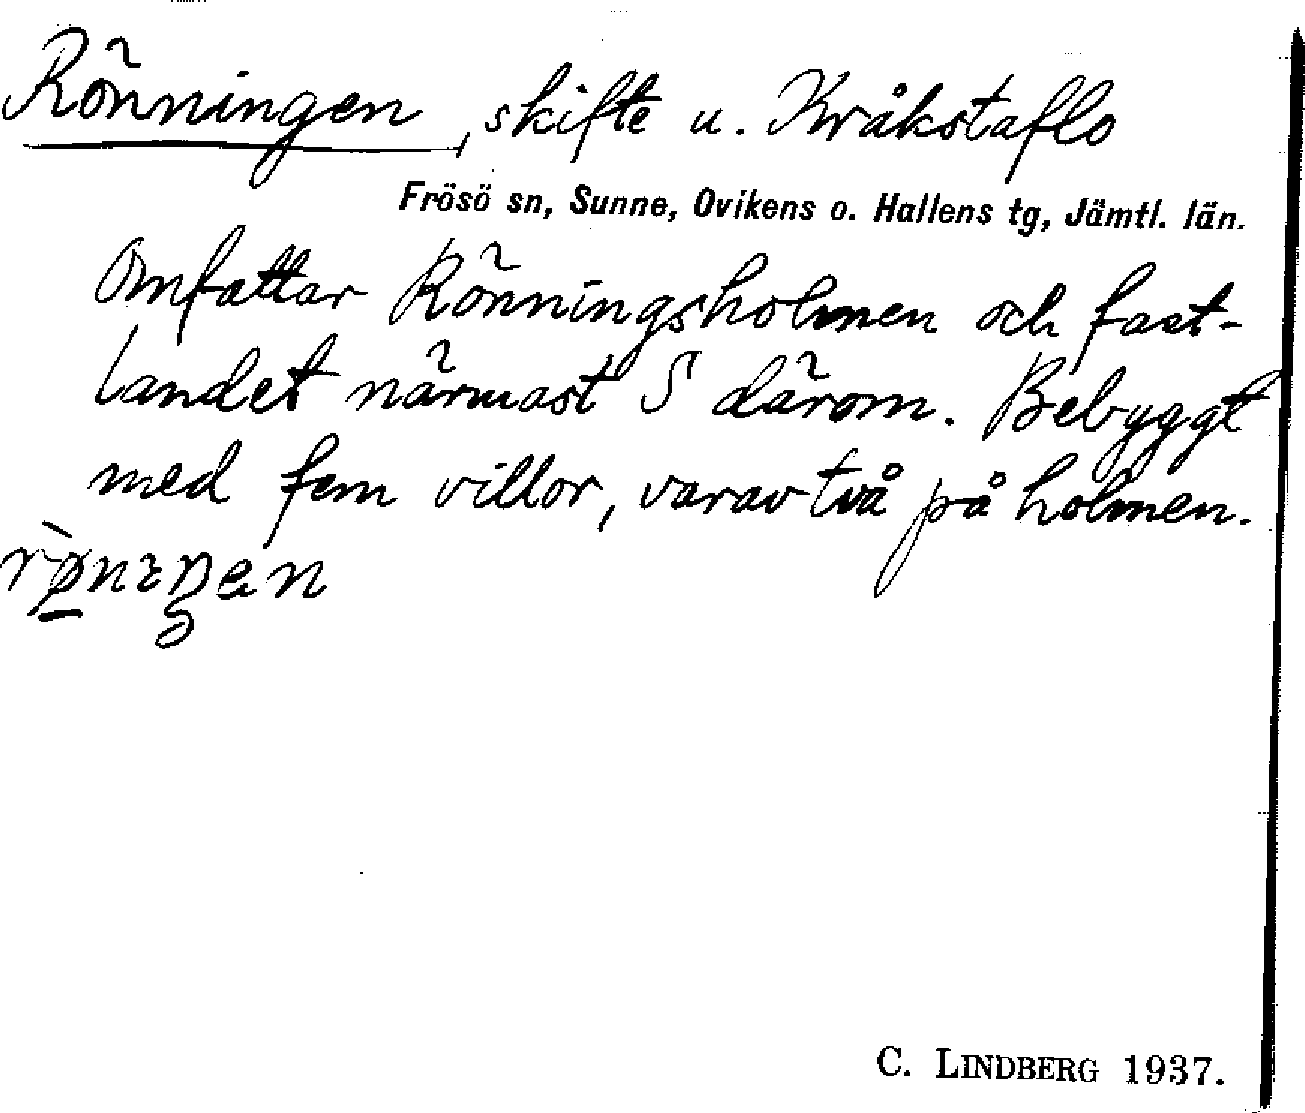 Rönningen, skifte u. Kråkstaflo
Frösö sn, Sunne, Ovikens o. Hallens tg, Jämtl. län.
Omfattar Rönningsholmen och fast-
landet närmast S därom. Bebyggt
med fem villor, varav två på holmen.
C. LINDBERG 1937.